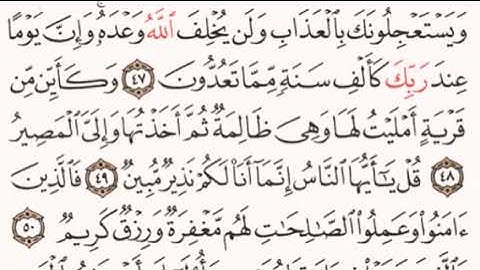 وَيَسْتَعْجِلُونَكَ بِٱلْعَذَابِ وَلَن يُخْلِفَ ٱللَّهُ وَعْدَهُۥۚ وَإِنَّ يَوْمًا
عِندَ رَبِّكَ كَأَلْفِ سَنَةٍۢ مِّمَّا تَعُدُّونَ ٤٧ وَكَأَيِّن مِّن
قَرْيَةٍ أَمْلَيْتُ لَهَا وَهِىَ ظَالِمَةٌۭ ثُمَّ أَخَذْتُهَا وَإِلَىَّ ٱلْمَصِيرُ
٤٨ قُلْ يَٰٓأَيُّهَا ٱلنَّاسُ إِنَّمَآ أَنَا۠ لَكُمْ نَذِيرٌۭ مُّبِينٌۭ ٤٩ فَٱلَّذِينَ
ءَامَنُوا۟ وَعَمِلُوا۟ ٱلصَّٰلِحَٰتِ لَهُم مَّغْفِرَةٌۭ وَرِزْقٌۭ كَرِيمٌۭ ٥٠